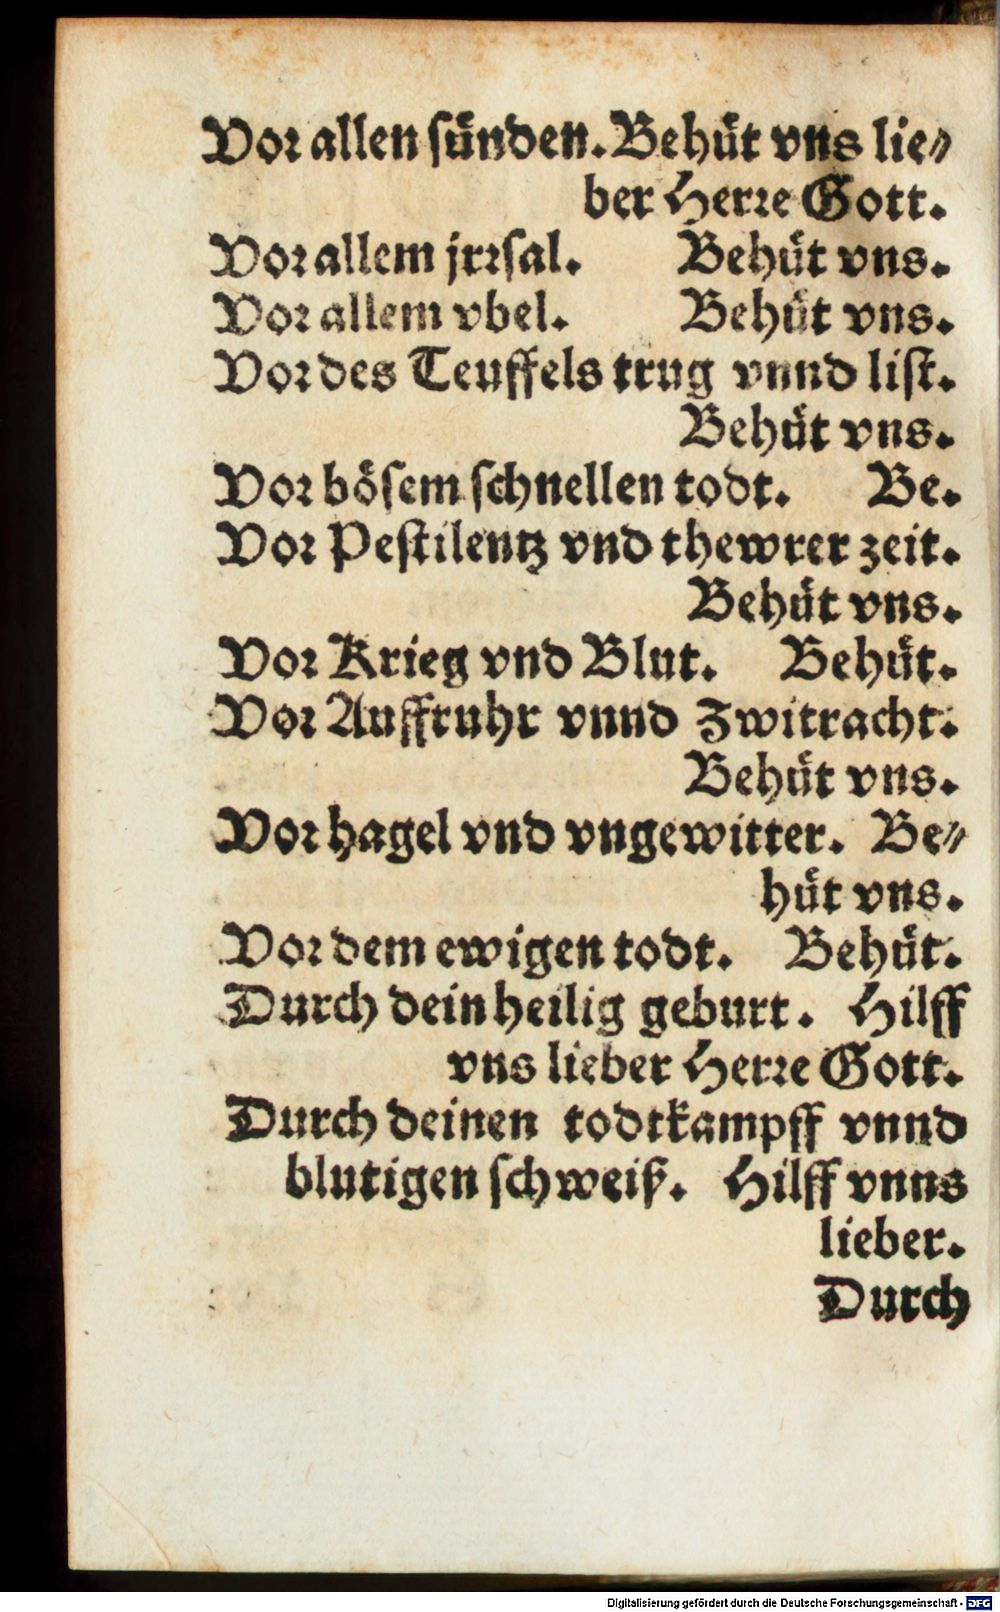 Vor allen sünden. Behüt vns lie-
ber Herre Gott.
Vor allem jrrsal. Behüt vns.
Vor allem vbel. Behüt vns.
Vor des Teuffels trug vnnd list.
Behüt vns.
Vor bösem schnellen todt. Be.
Vor Pestilentz vnd thewrer zeit.
Behüt vns.
Vor Krieg vnd Blut. Behüt.
Vor Auffruhr vnnd Zwitracht.
Behüt vns.
Vor hagel vnd vngewitter. Be-
hüt vns.
Vor dem ewigen todt. Behüt.
Durch dein heilig geburt. Hilff
vns lieber Herre Gott.
Durch deinen todtkampff vnnd
blutigen schweiß. Hilff vnns
lieber.
Durch
Digitalisierung gefördert durch die Deutsche Forschungsgemeinschaft - DFG